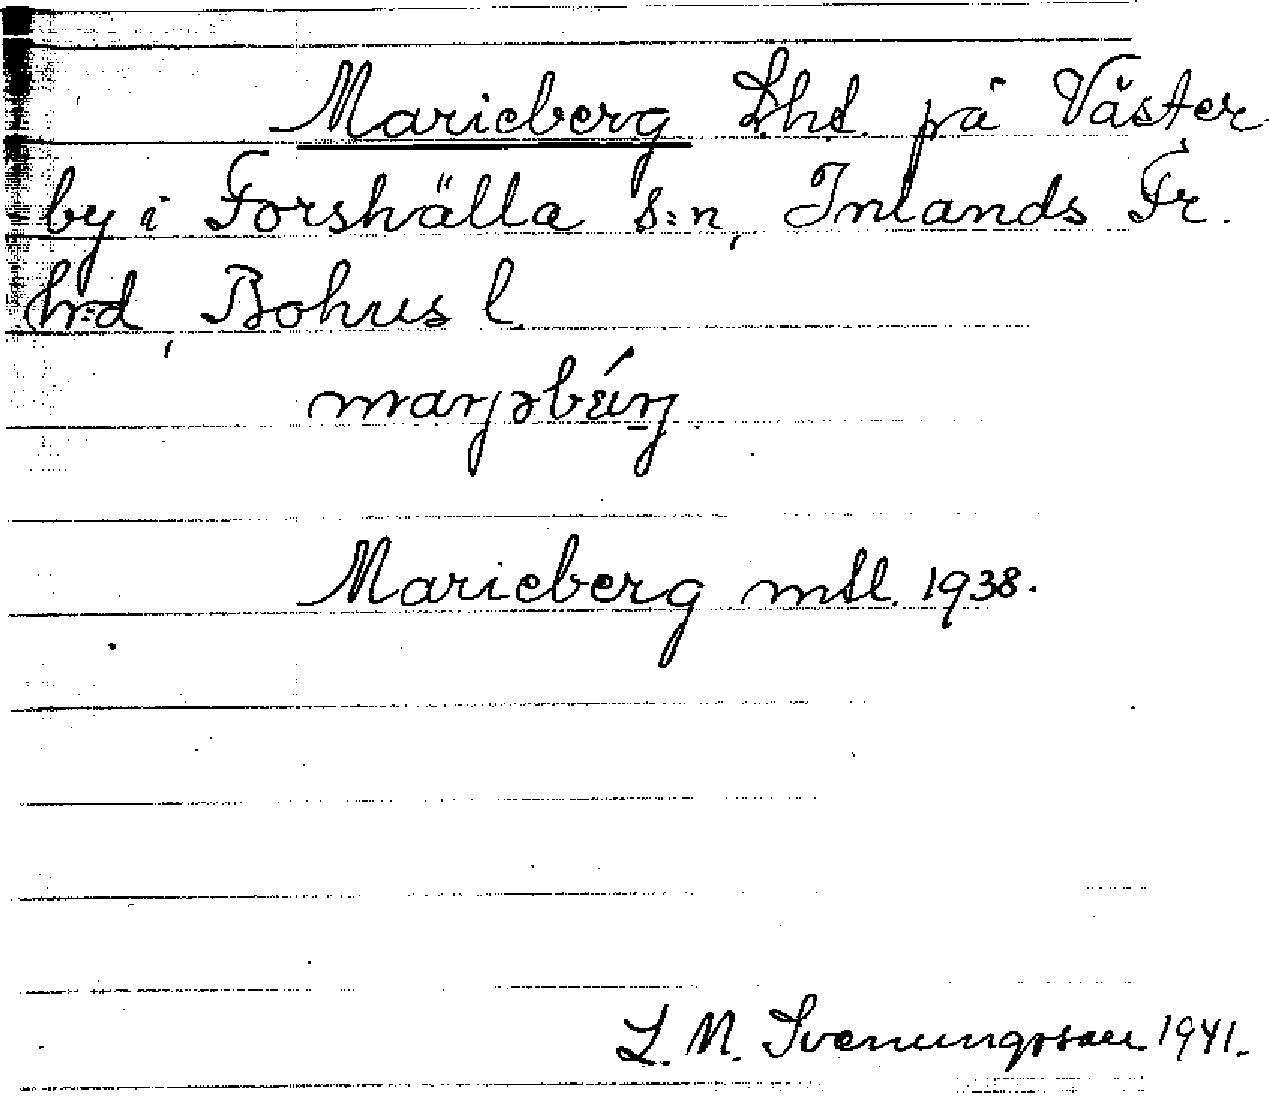 Marieberg Lhd. på Väster
by i Forshälla s:n, Inlands Fr.
hrd, Bohus l
marjəbærj
Marieberg mtl. 1938.
L. M. Svenungsson 1941.